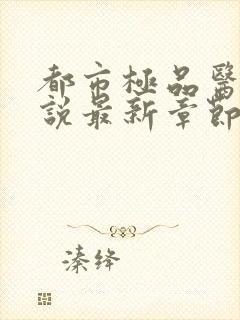 都市極品醫
說最新章節
溱绛